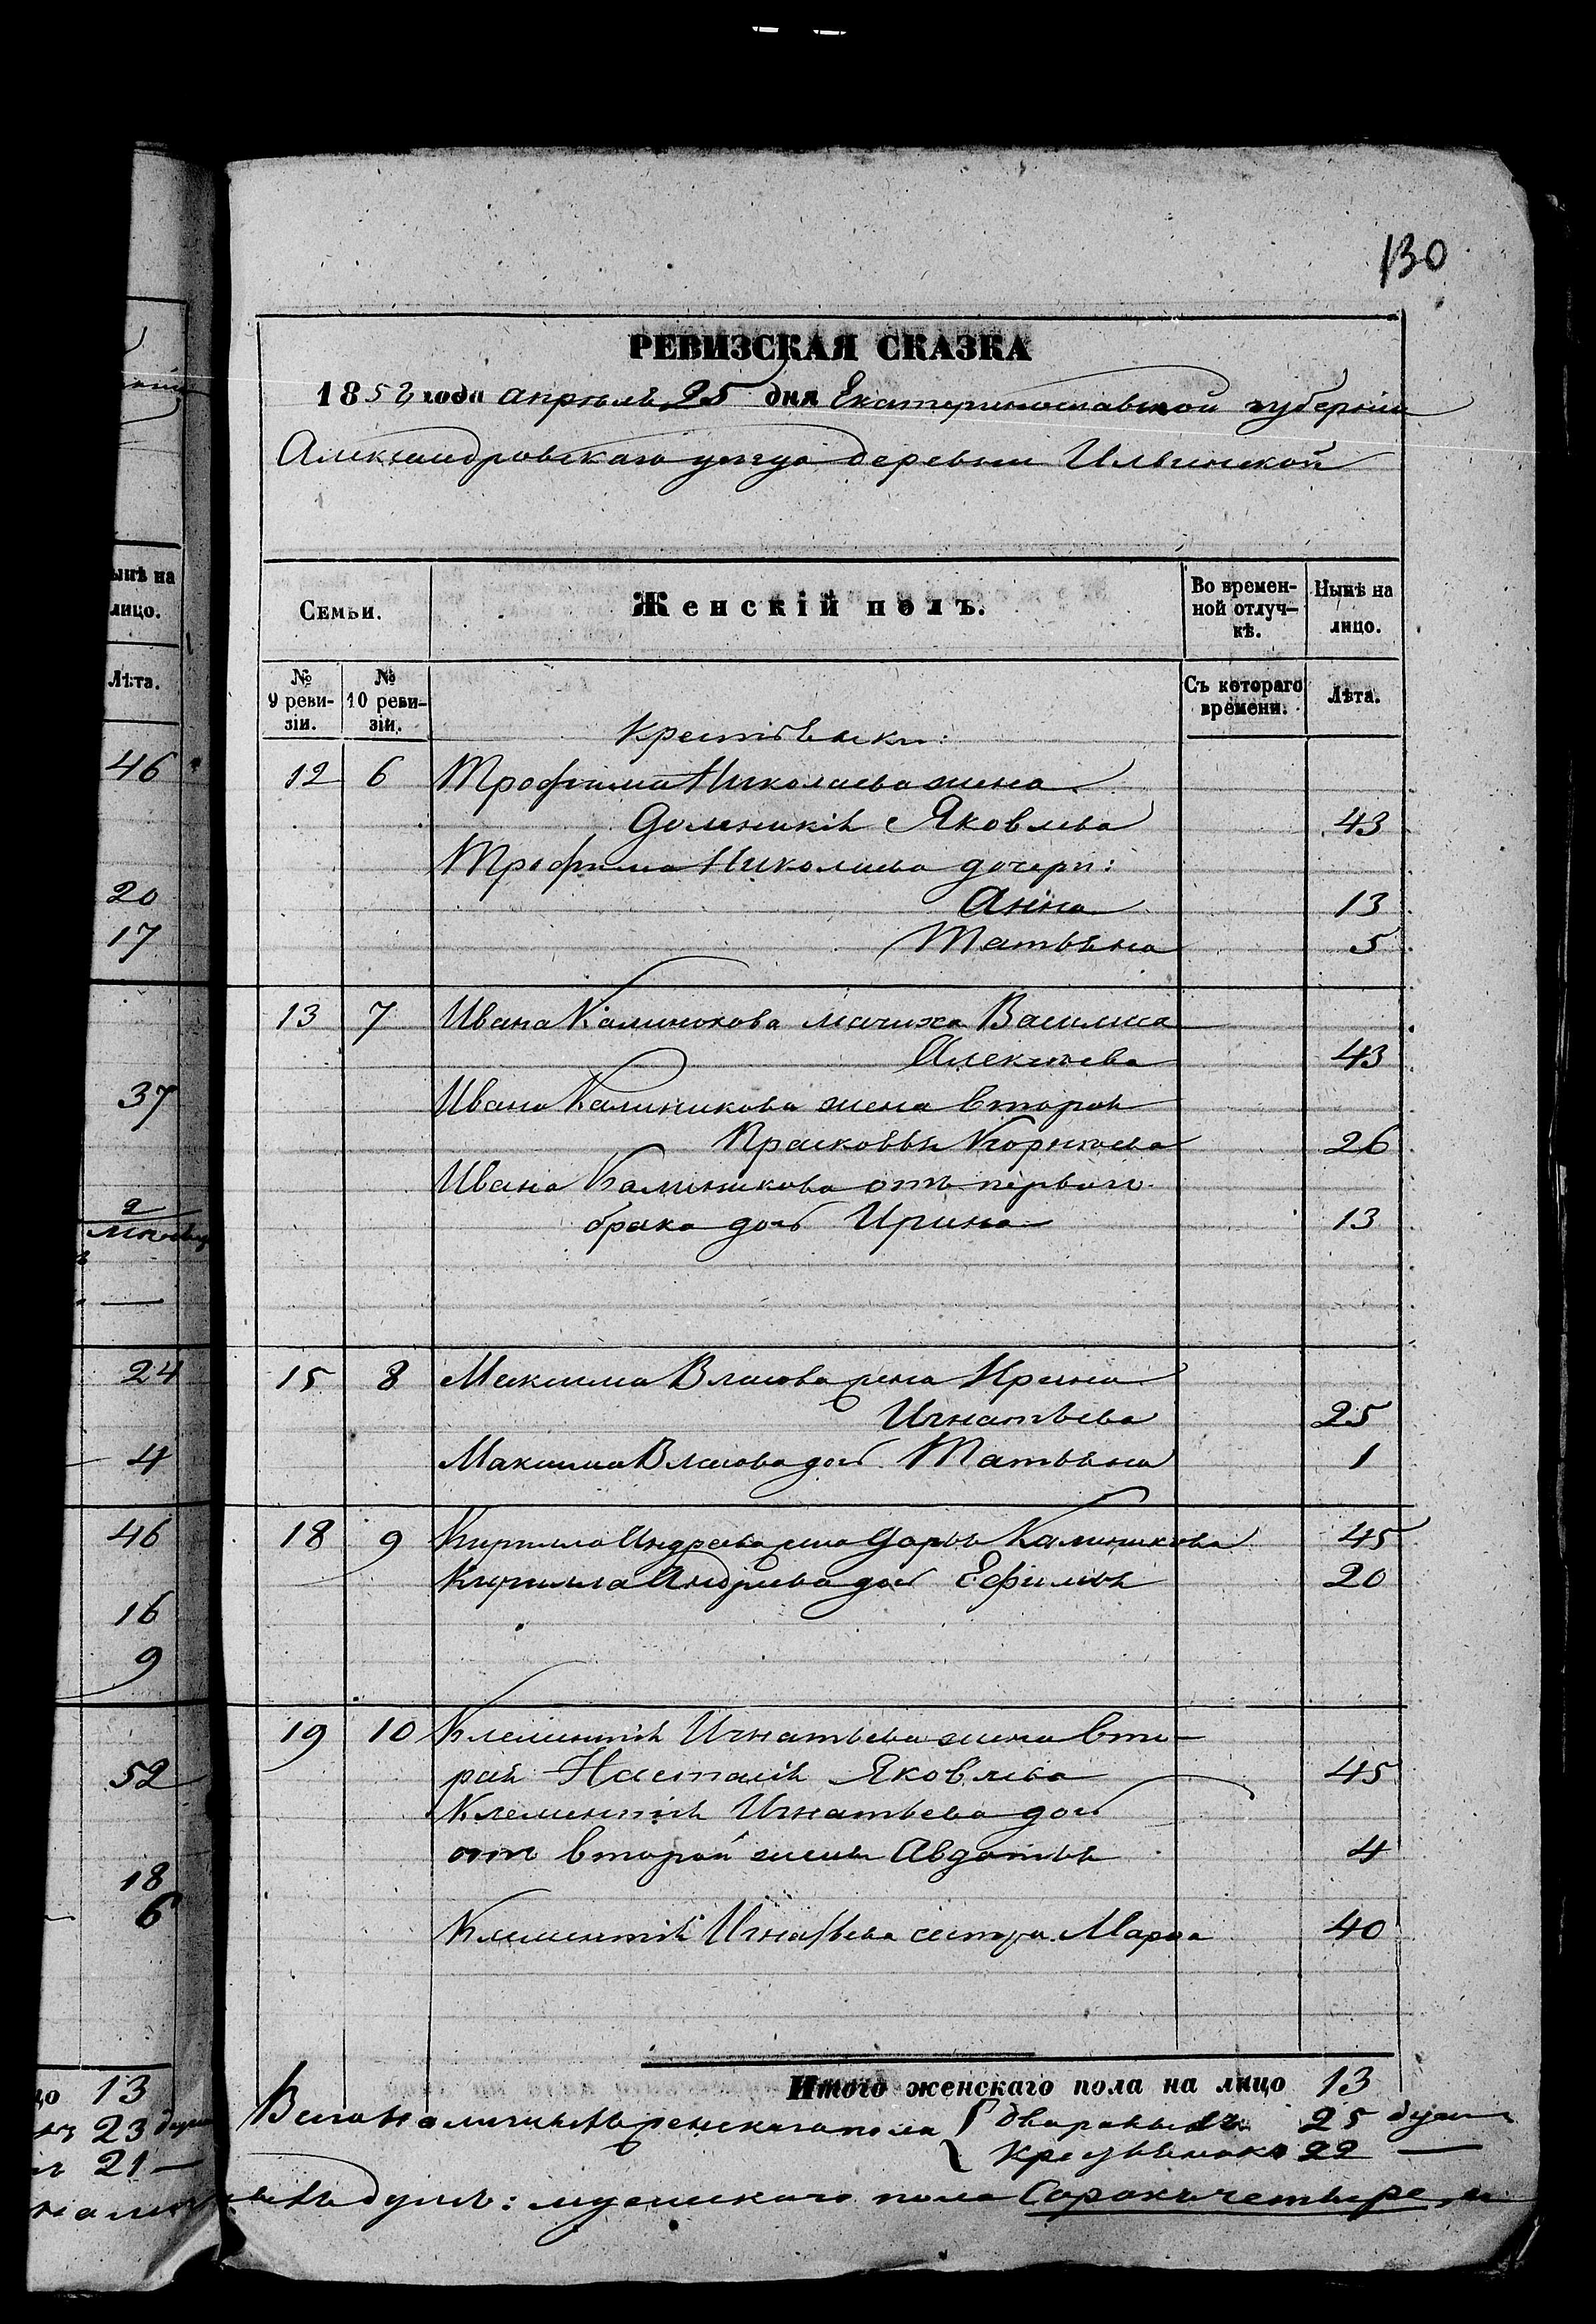 130
РЕВИЗСКАЯ СКАЗКА
1858 года апрѣля 25 дня Екатеринославской губерніи
Александровскаго уезда деревни Ильинской
Семьи.
Женскій полъ.
Во времен-
ной отлуч-
кѣ.
Нынѣ на
лицо.
№
9 реви-
зіи.
№
10 реви-
зіи.
Съ котораго
времени.
Лѣта.
Крестьянки:
12 6 Трофима Николаева жена
Доменикія Яковлева 43
Трофима Николаева дочери:
Анна 13
Татьяна 5
13 7 Ивана Калиникова мачиха Василиса
Алексѣева 43
Ивана Калиникова жена вторая
Прасковья Корнѣева 26
Ивана Калиникова отъ перваго
брака дочь Ирина 13
15 8 Максима Власова жена Ирина
Игнатьева 25
Максима Власова дочь Татьяна 1
18 9 Кирилла Андреева жена Дарья Калиникова 45
Кирилла Андреева дочь Ефимья 20
19 10 Клементія Игнатьева жена вто-
рая Настасія Яковлева 45
Клементія Игнатьева дочь
отъ второй жены Авдотья 4
Клементія Игнатьева сестра Марфа 40
Итого женскаго пола на лицо 13
Всего наличныхъ женскаго пола { дворовыхъ 25 душъ
крестьянокъ 22 —
душъ: мужескаго пола Сорокъ четыре, и
ынѣ на
лицо.
Лѣта.
46
20
17
37
24
4
46
16
9
52
18
6
цо 13
23
21 —